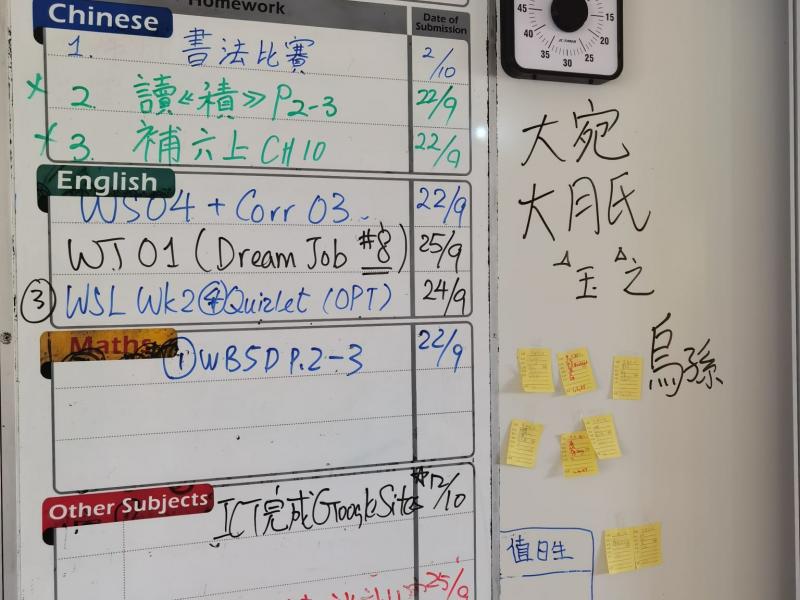 Homework
Date of Submission
Chinese
1. 書法比賽 2/10
× 2. 讀《積》P2-3 22/9
× 3. 補六上 CH10 22/9
English
WS04 + Corr 03 22/9
WJ 01 (Dream Job #8) 25/9
③ WSL Wk2 ④ Quizlet (OPT) 24/9
Maths
① WB5D P.2-3 22/9
Other Subjects
ICT完成Google Sites *12/10
25/9
45
40
35
30
25
20
15
大宛
大月氏
玉之
烏孫
值日生